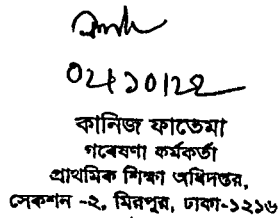 ০২/১০/২২
কানিজ ফাতেমা
গবেষণা কর্মকর্তা
প্রাথমিক শিক্ষা অধিদপ্তর,
সেকশন -২, মিরপুর, ঢাকা-১২১৬